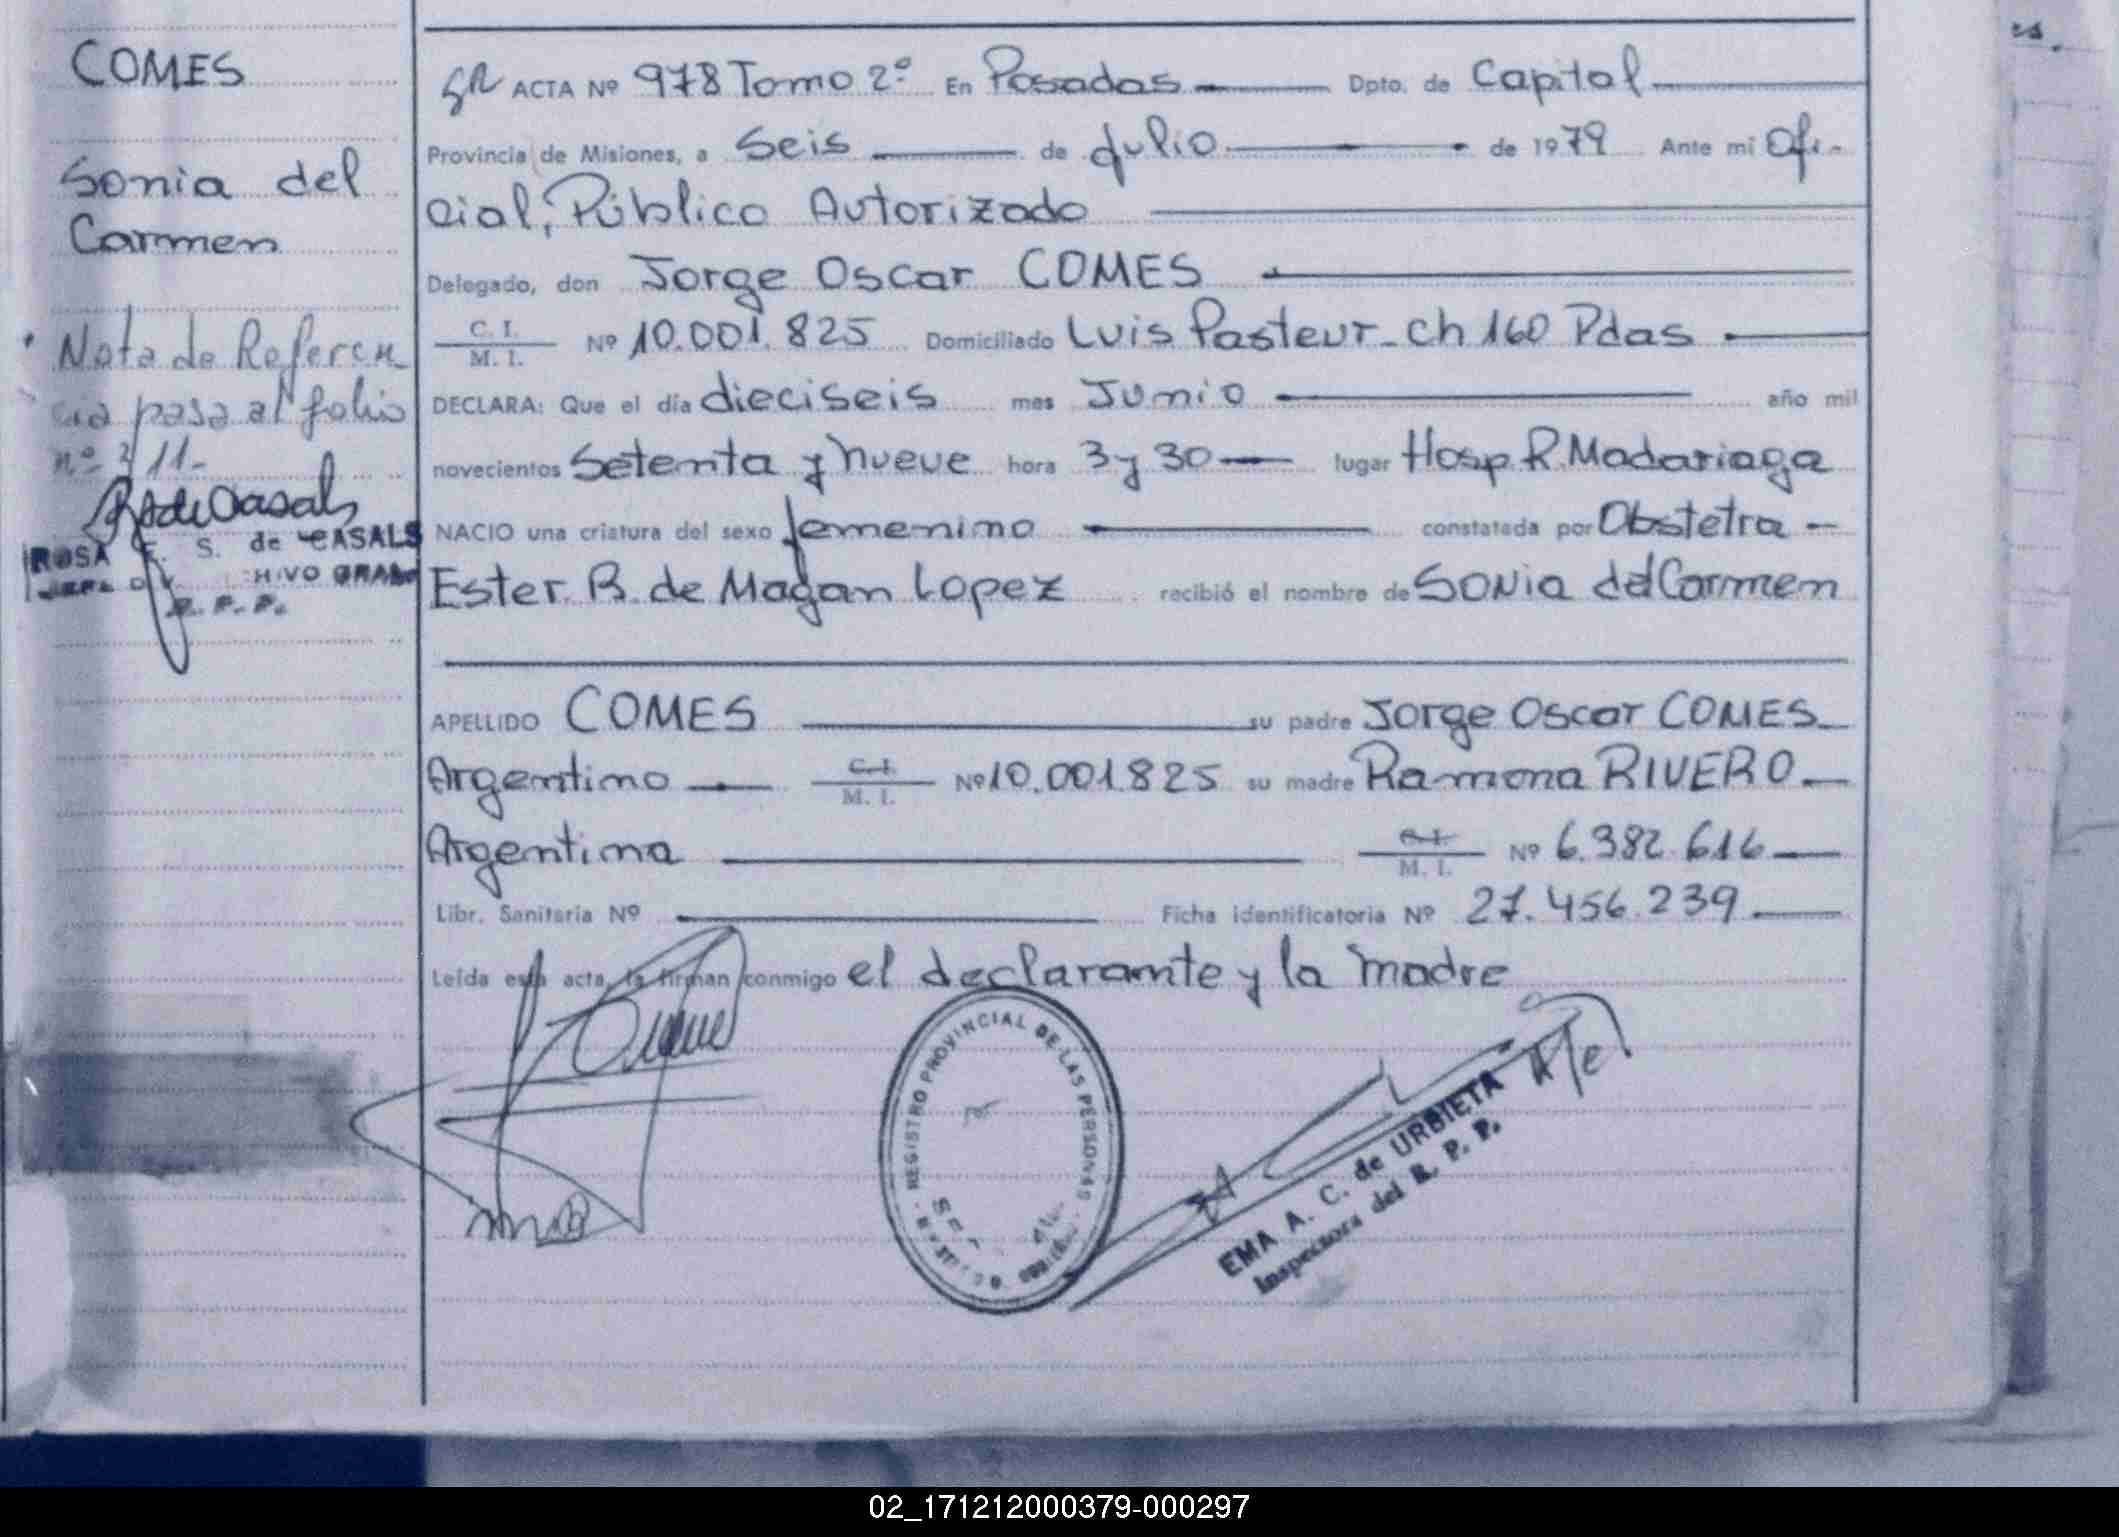 es.
COMES
Sonia del
Carmen
Nota de Referen
cia pasa al folio
nº 211-
ROSA E. S. de CASALS
R. P. P.
ACTA Nº 978 Tomo 2º En Posadas Dpto. de Capital
Provincia de Misiones, a Seis de Julio de 1979 Ante mi Ofi-
cial, Público Autorizado
Delegado, don Jorge Oscar COMES
C. I.
M. I. Nº 10.001.825 Domiciliado Luis Pasteur-ch 160 Pdas
DECLARA: Que el día dieciseis mes Junio año mil
novecientos Setenta y nueve hora 3 y 30 lugar Hosp R. Madariaga
NACIO una criatura del sexo femenino constatada por Obstetra
Ester B. de Magan Lopez recibió el nombre de Sonia del Carmen
APELLIDO COMES su padre Jorge Oscar COMES
Argentino C. I. M. I. Nº 10.001.825 su madre Ramona RIVERO
Argentina C. I. M. I. Nº 6.382.616
Libr. Sanitaria Nº Ficha identificatoria Nº 27.456.239
Leída esta acta, la firman conmigo el declarante y la madre
REGISTRO PROVINCIAL DE LAS PERSONAS
EMA A. C. de URBIETA
Inspectora del R. P. P.
02_171212000379-000297